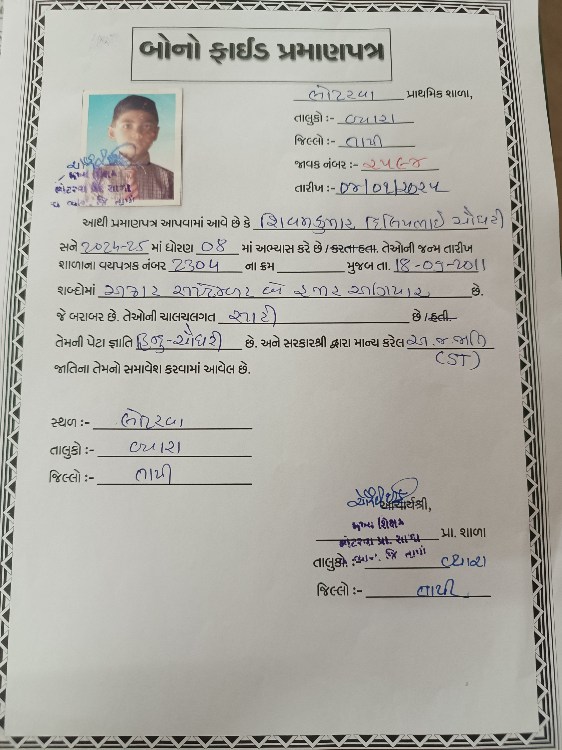 બોનો ફાઈડ પ્રમાણપત્ર
ભોટરવા પ્રાથમિક શાળા,
તાલુકો :- વ્યારા
જિલ્લો :- તાપી
જાવક નંબર :- ૨૫૬૪
તારીખ :- 04/01/2025
આથી પ્રમાણપત્ર આપવામાં આવે છે કે શિવમકુમાર દિલિપભાઈ ચૌધરી
સને 2024-25 માં ધોરણ 08 માં અભ્યાસ કરે છે /કરતા હતા. તેઓની જન્મ તારીખ
શાળાના વયપત્રક નંબર 2304 ના ક્રમ મુજબ તા. 18-09-2011
શબ્દોમાં અઢાર સપ્ટેમ્બર બે હજાર અગિયાર છે.
જે બરાબર છે. તેઓની ચાલચલગત સારી છે /હતી.
તેમની પેટા જ્ઞાતિ હિન્દુ-ચૌધરી છે. અને સરકારશ્રી દ્વારા માન્ય કરેલ અ.જ.જાતિ
(ST)
જાતિના તેમનો સમાવેશ કરવામાં આવેલ છે.
સ્થળ :- ભોટરવા
તાલુકો :- વ્યારા
જિલ્લો :- તાપી
આચાર્યશ્રી,
મુખ્ય શિક્ષક
પ્રા. શાળા
તાલુકો :- વ્યારા
જિલ્લો :- તાપી